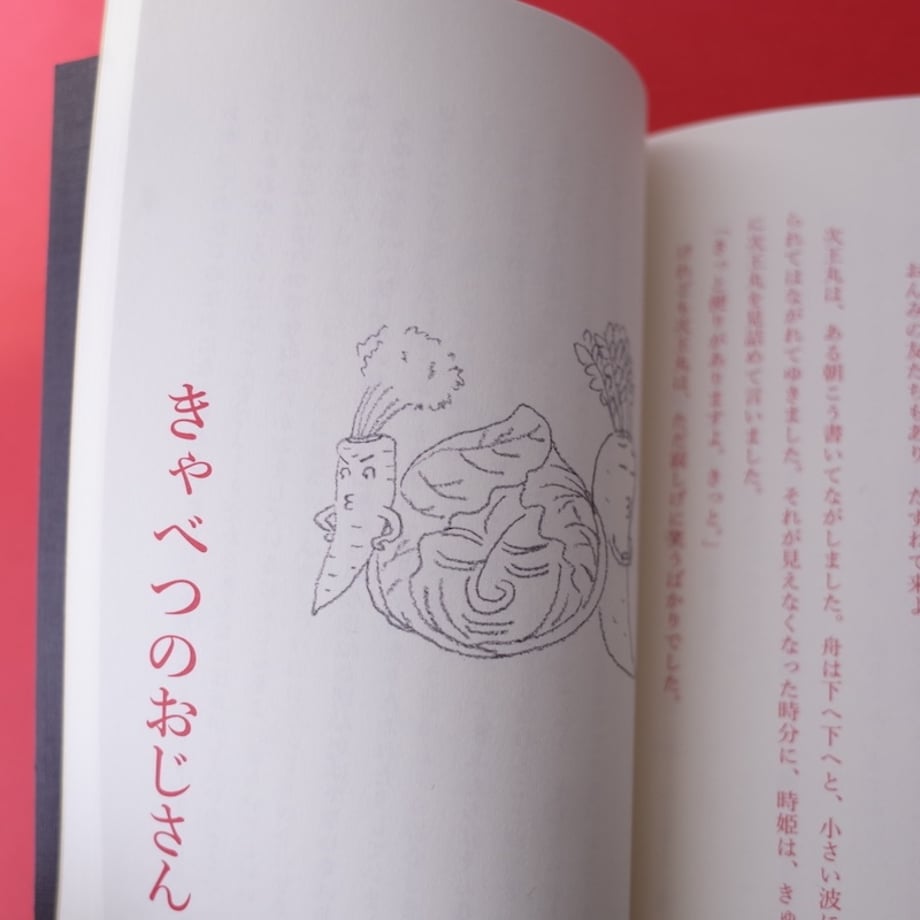 おんみの友だちあり たづねて来よ
天王丸は、ある朝こう書いてながしました。舟は下へ下へと、小さい波
られてはながれてゆきました。それが見えなくなった時分に、時姫は、きゅ
に天王丸を見詰めて言いました。
「きっと便りがありますよ、きっと。」
けれども天王丸は、ただ しげに笑うばかりでした。
きゃべつのおじさん